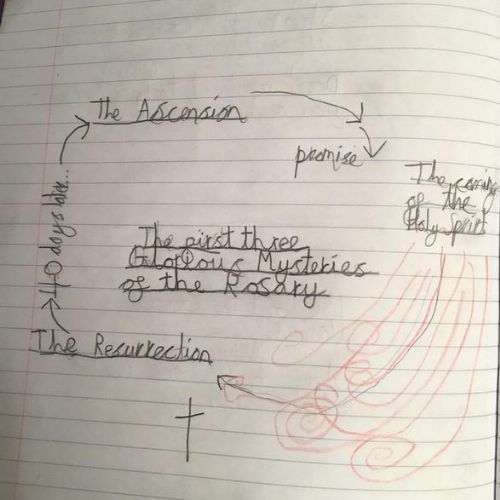 The Ascension
promise
The coming
of the
Holy Spirit
40 days later...
The first three
Glorious Mysteries
of the Rosary
The Resurrection